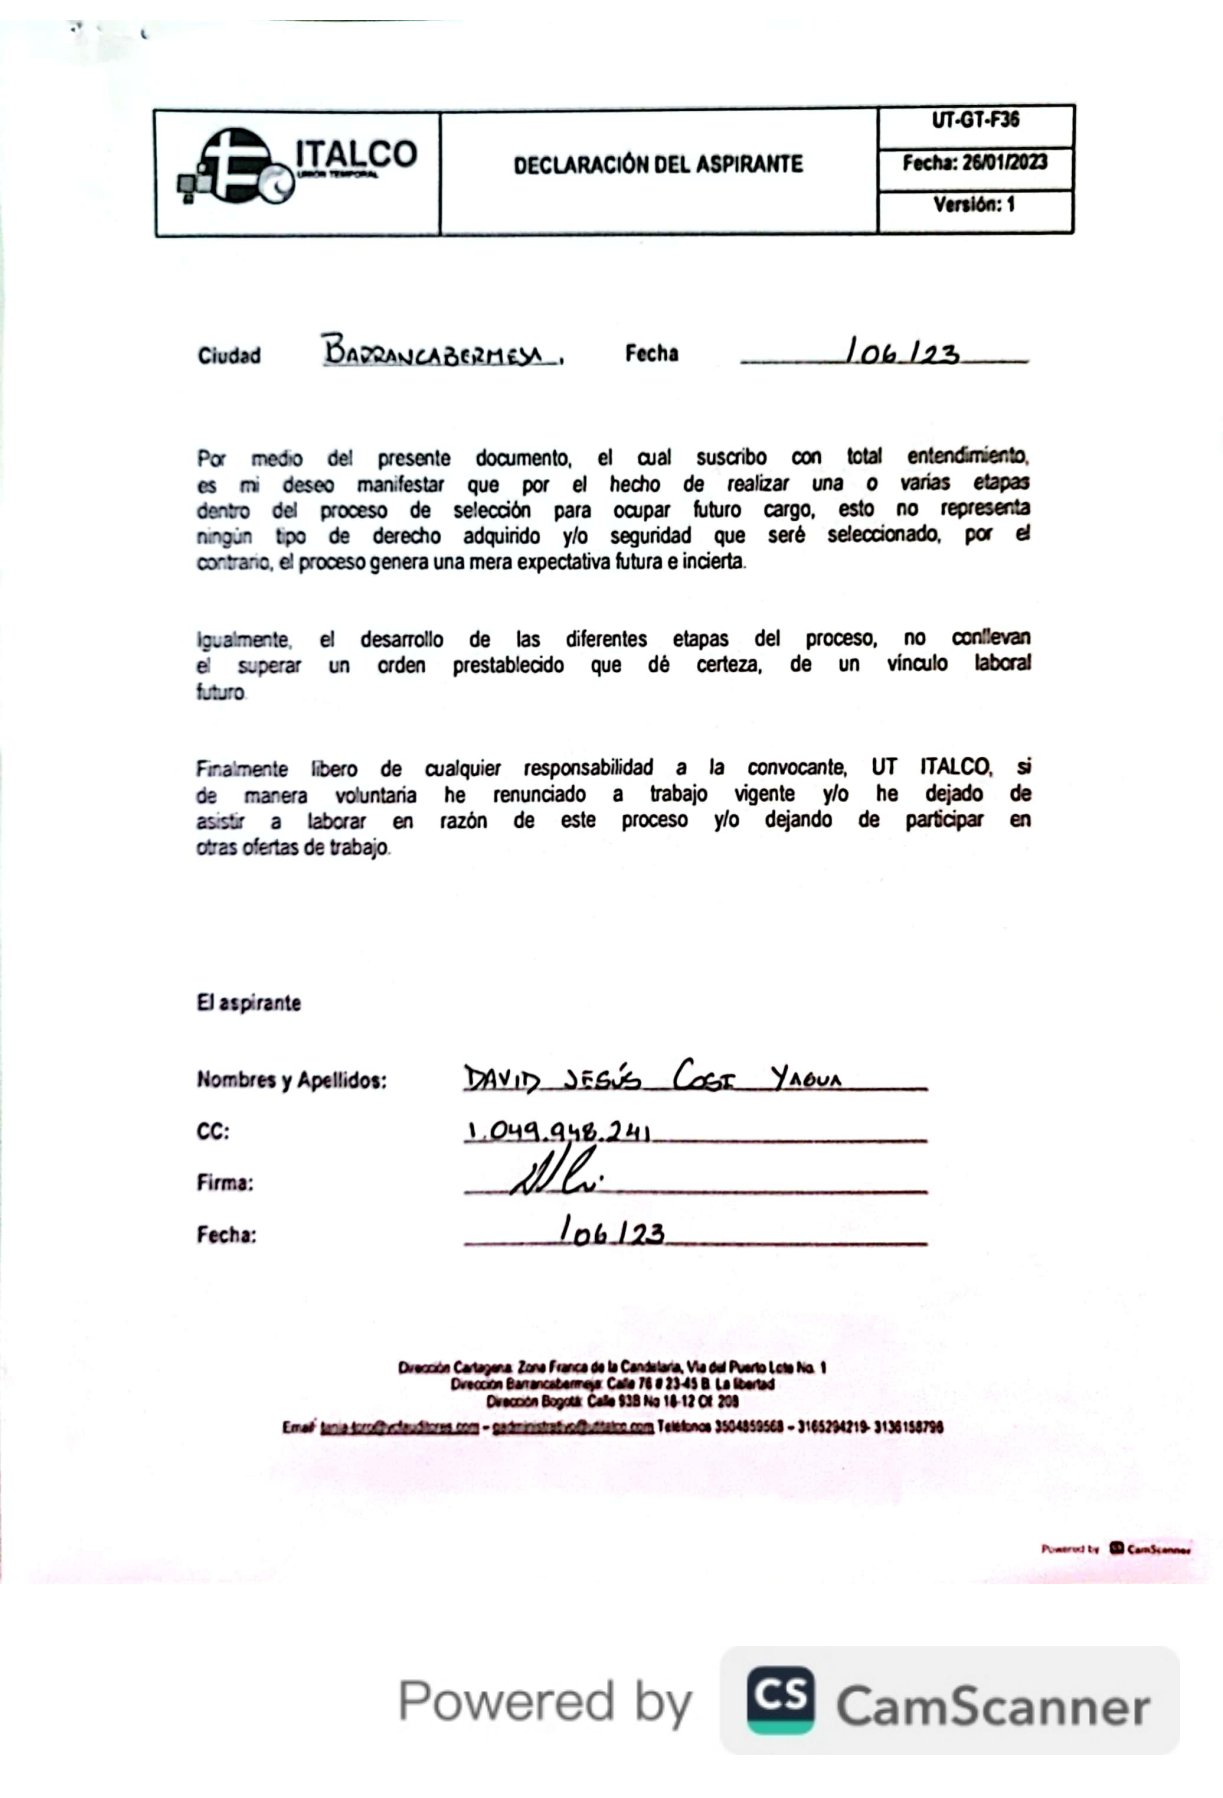 ITALCO
UNIÓN TEMPORAL
DECLARACIÓN DEL ASPIRANTE
UT-GT-F36
Fecha: 26/01/2023
Versión: 1
Ciudad BARRANCABERMEJA. Fecha /06/23
Por medio del presente documento, el cual suscribo con total entendimiento,
es mi deseo manifestar que por el hecho de realizar una o varias etapas
dentro del proceso de selección para ocupar futuro cargo, esto no representa
ningún tipo de derecho adquirido y/o seguridad que seré seleccionado, por el
contrario, el proceso genera una mera expectativa futura e incierta.
Igualmente, el desarrollo de las diferentes etapas del proceso, no conllevan
el superar un orden prestablecido que dé certeza, de un vínculo laboral
futuro.
Finalmente libero de cualquier responsabilidad a la convocante, UT ITALCO, si
de manera voluntaria he renunciado a trabajo vigente y/o he dejado de
asistir a laborar en razón de este proceso y/o dejando de participar en
otras ofertas de trabajo.
El aspirante
Nombres y Apellidos: DAVID JESÚS COSI YAGUA
CC: 1.049.948.241
Firma:
Fecha: /06/23
Dirección Cartagena: Zona Franca de la Candelaria, Via del Puerto Lote No. 1
Dirección Barrancabermeja: Calle 76 # 23-45 B. La libertad
Dirección Bogotá: Calle 93B No 18-12 Of. 208
Email: – Teléfonos 3504859568 – 3165294219- 3136158796
Powered by CS CamScanner
Powered by CS CamScanner